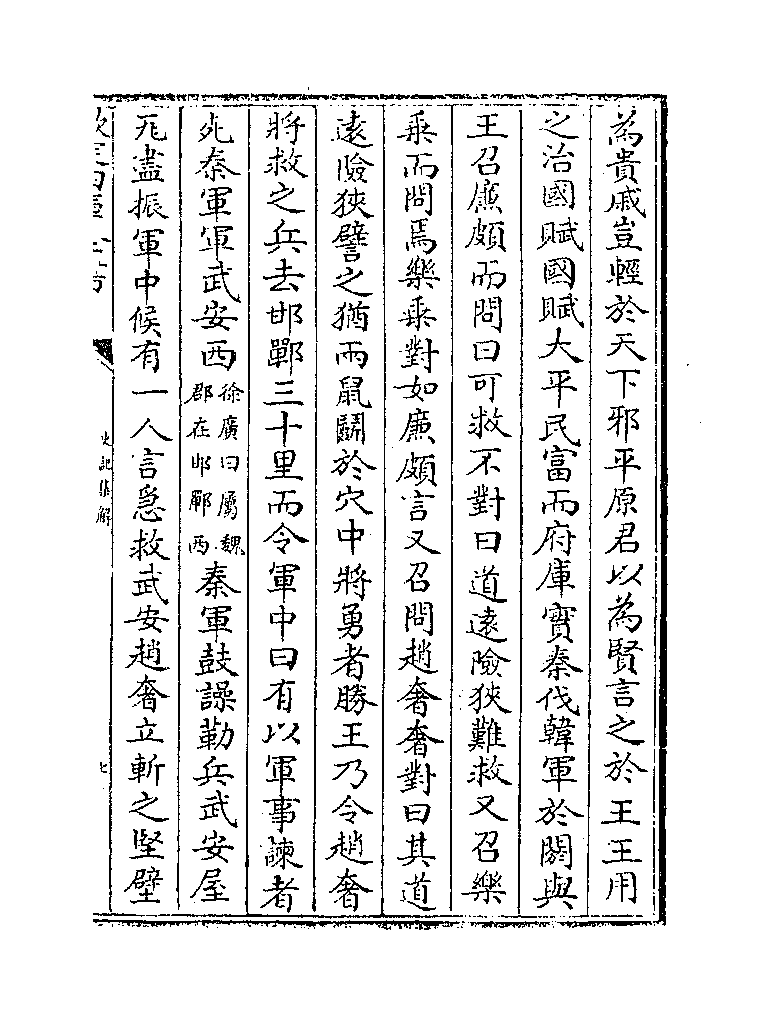 為貴戚豈輕於天下邪平原君以為賢言之於王王用
之治國賦國賦大平民富而府庫實秦伐韓軍於閼與
王召廉頗而問曰可救不對曰道遠險狹難救又召樂
乘而問焉樂乘對如廉頗言又召問趙奢奢對曰其道
遠險狹譬之猶兩鼠鬬於穴中將勇者勝王乃令趙奢
將救之兵去邯鄲三十里而令軍中曰有以軍事諫者
死秦軍軍武安西徐廣曰屬魏郡在邯鄲西秦軍鼓譟勒兵武安屋
瓦盡振軍中候有一人言急救武安趙奢立斬之堅壁
史記集解
七